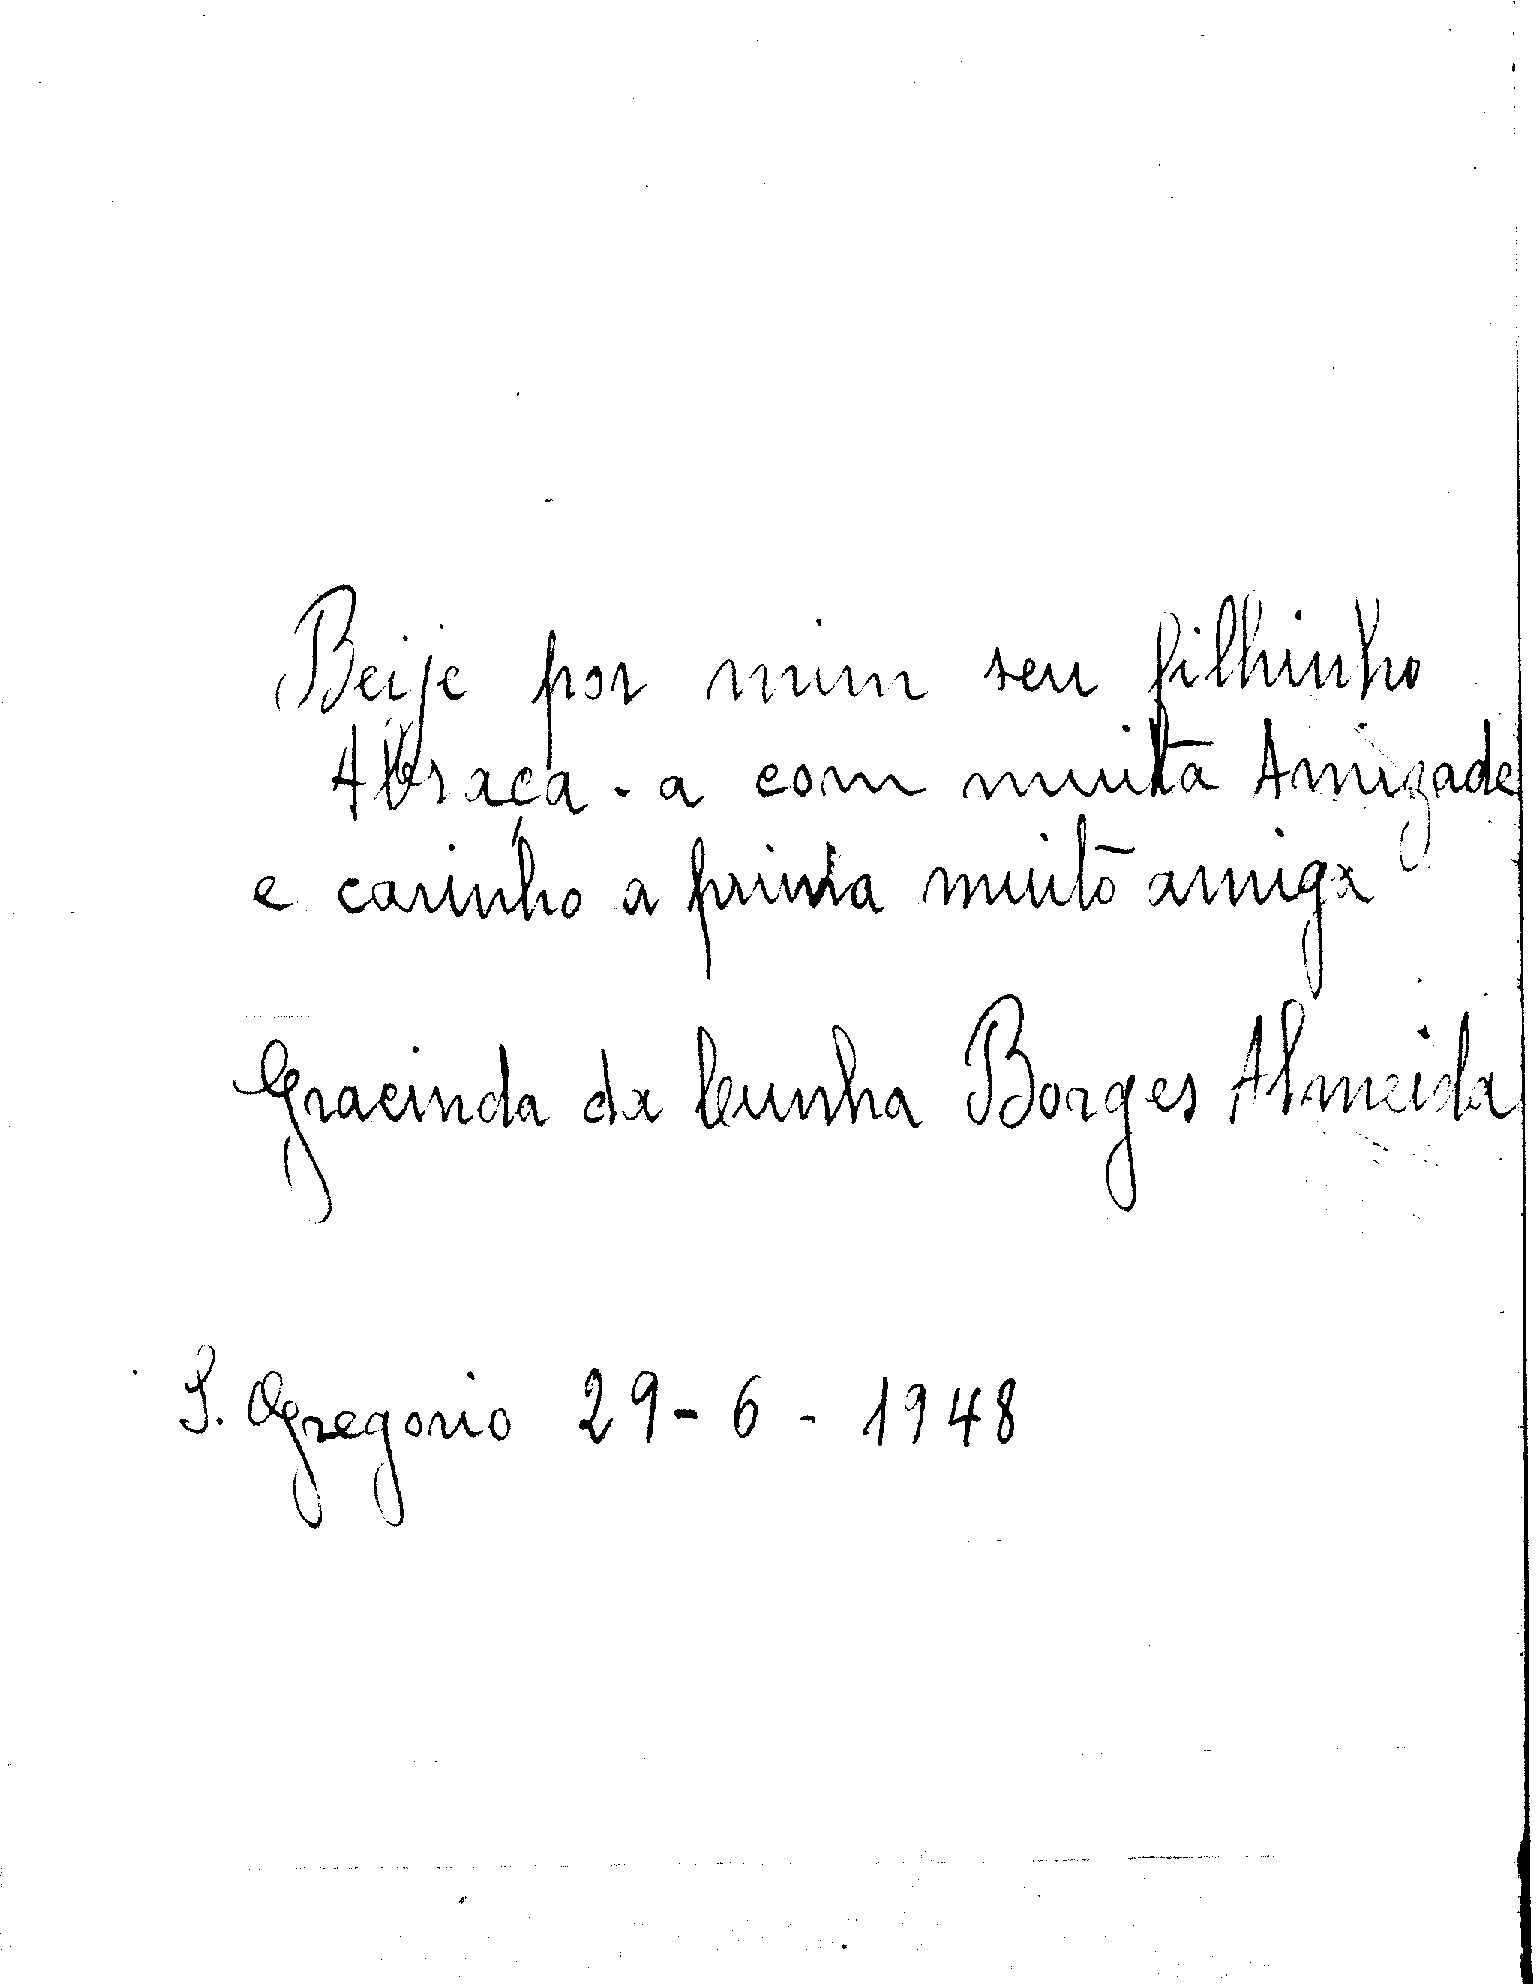 Beije por mim seu filhinho
Abraça-a com muita Amizade
e carinho a prima muito amiga
Gracinda da Cunha Borges Almeida
S. Gregorio 29-6-1948